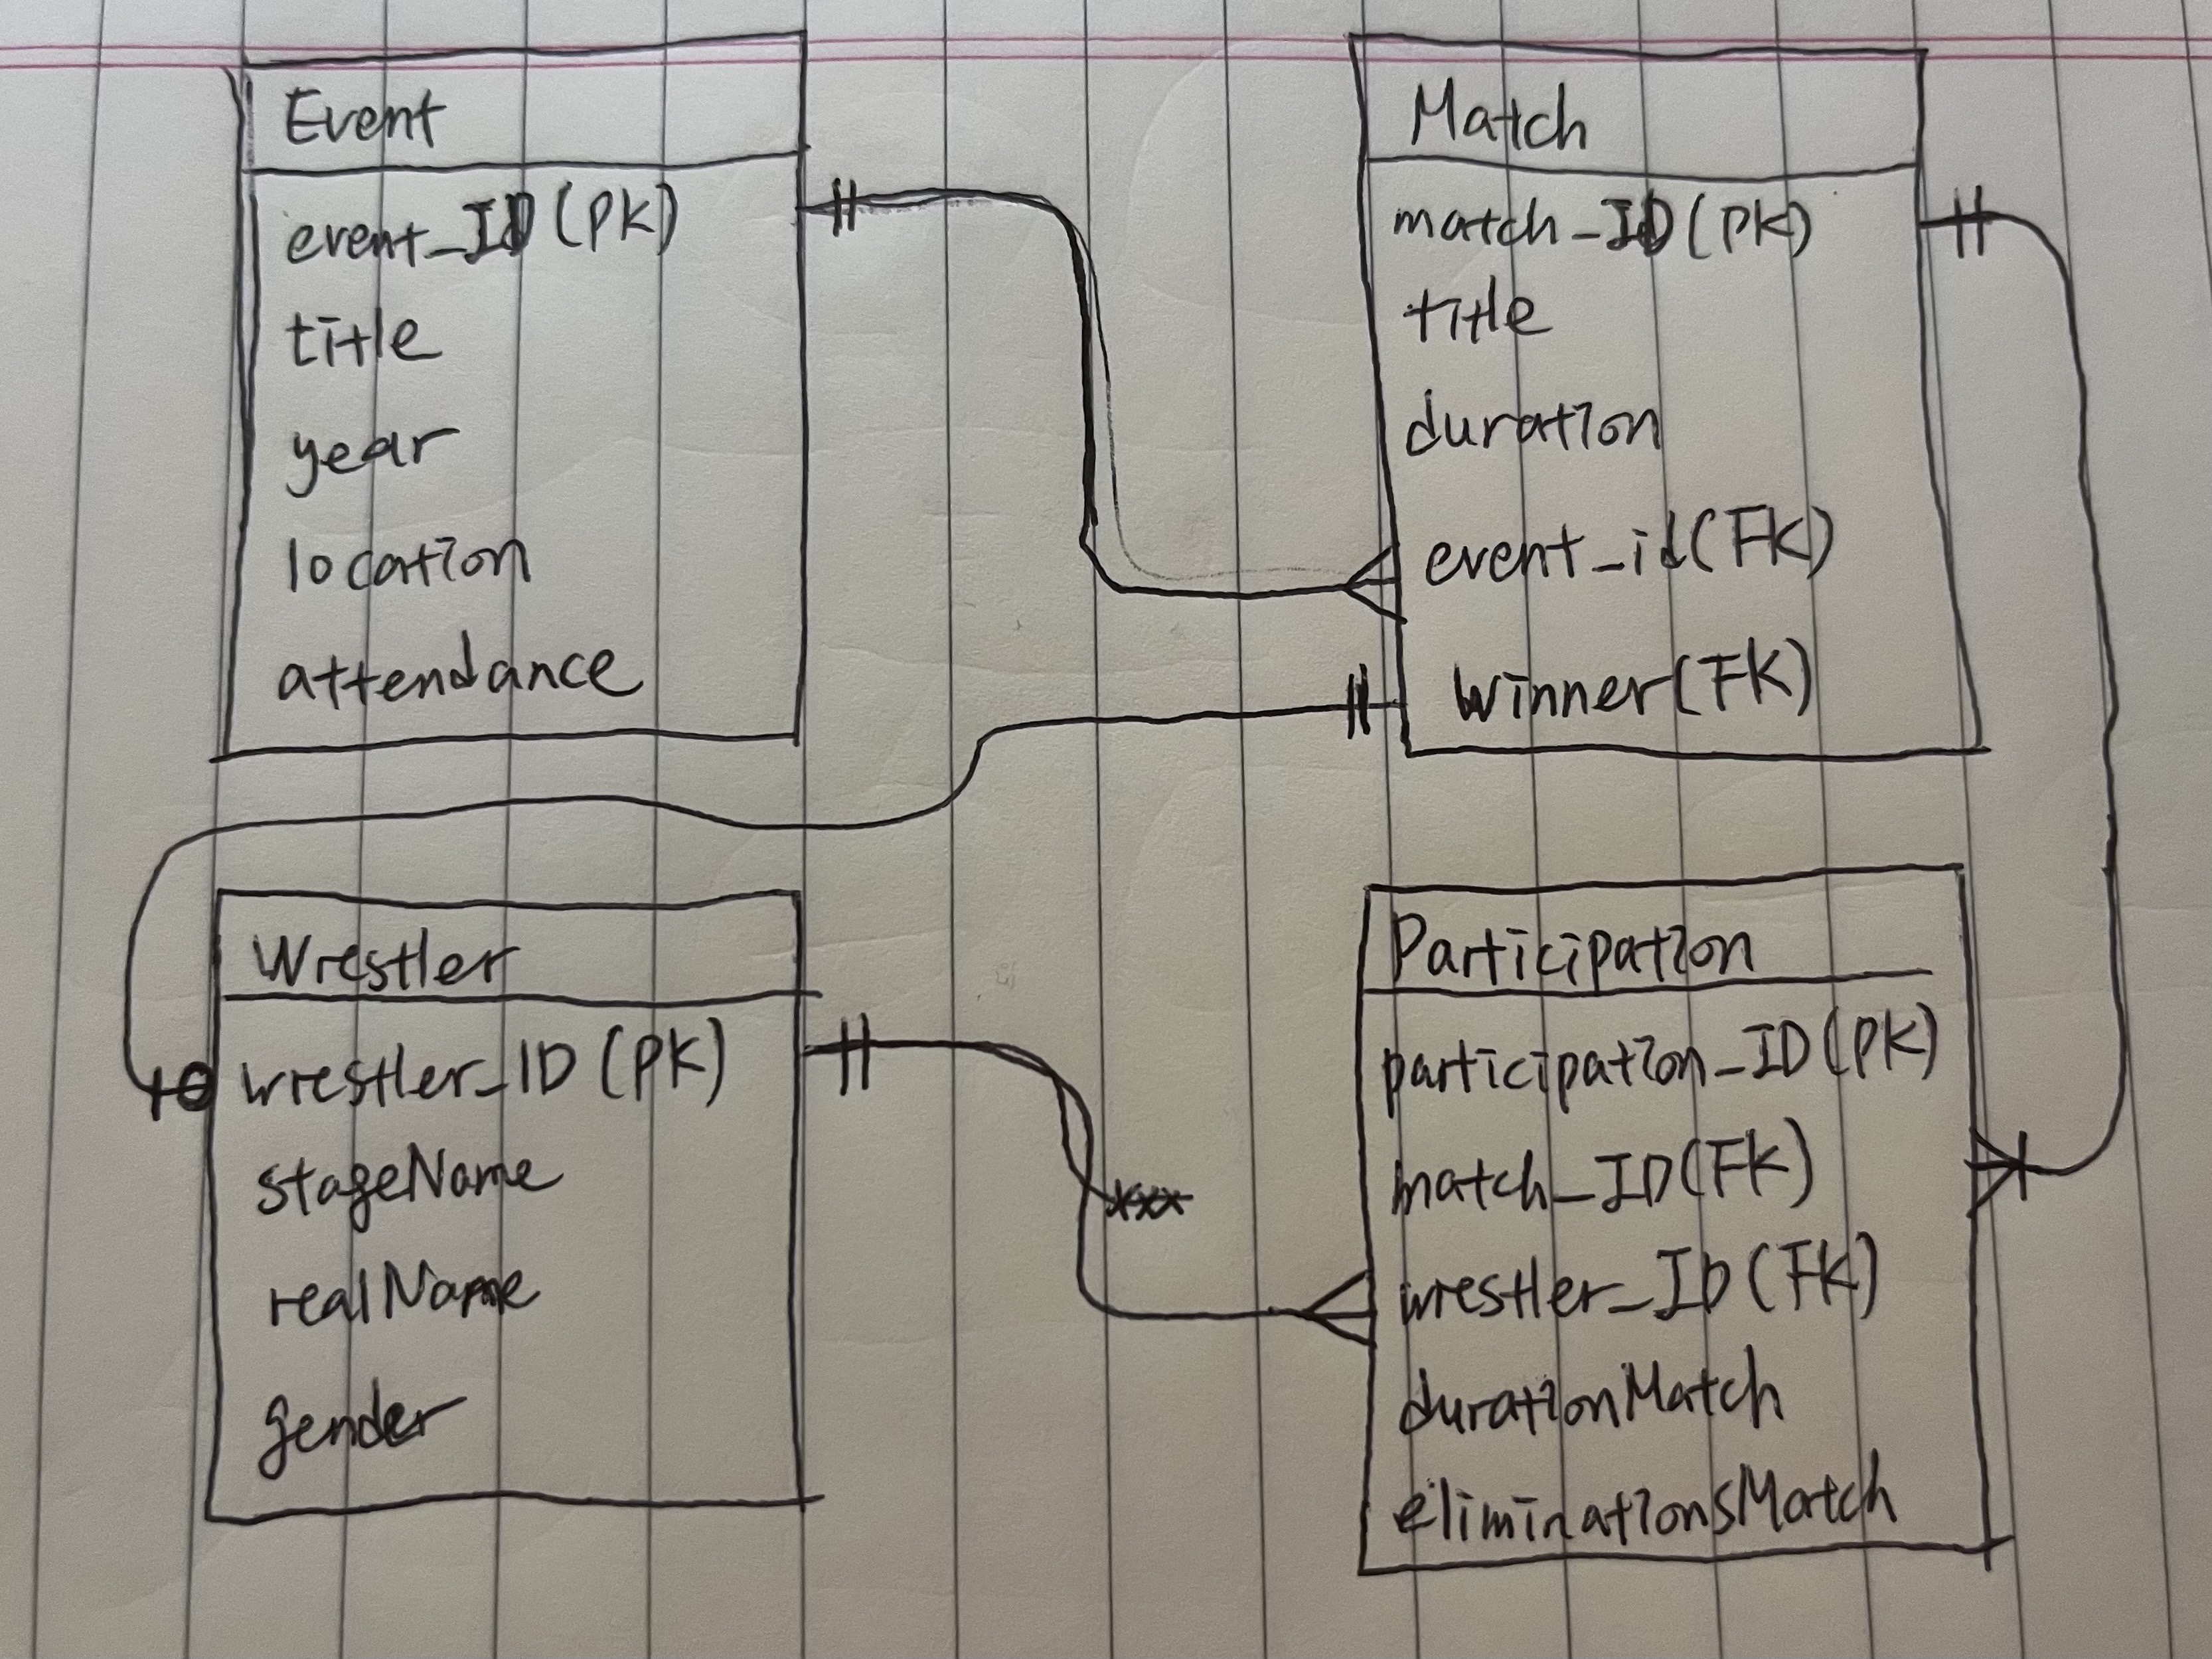 Event
event_ID (PK)
title
year
location
attendance
Match
match_ID (PK)
title
duration
event_id (FK)
winner (FK)
Wrestler
wrestler_ID (PK)
stageName
realName
gender
Participation
participation_ID (PK)
match_ID (FK)
wrestler_ID (FK)
durationMatch
eliminationsMatch